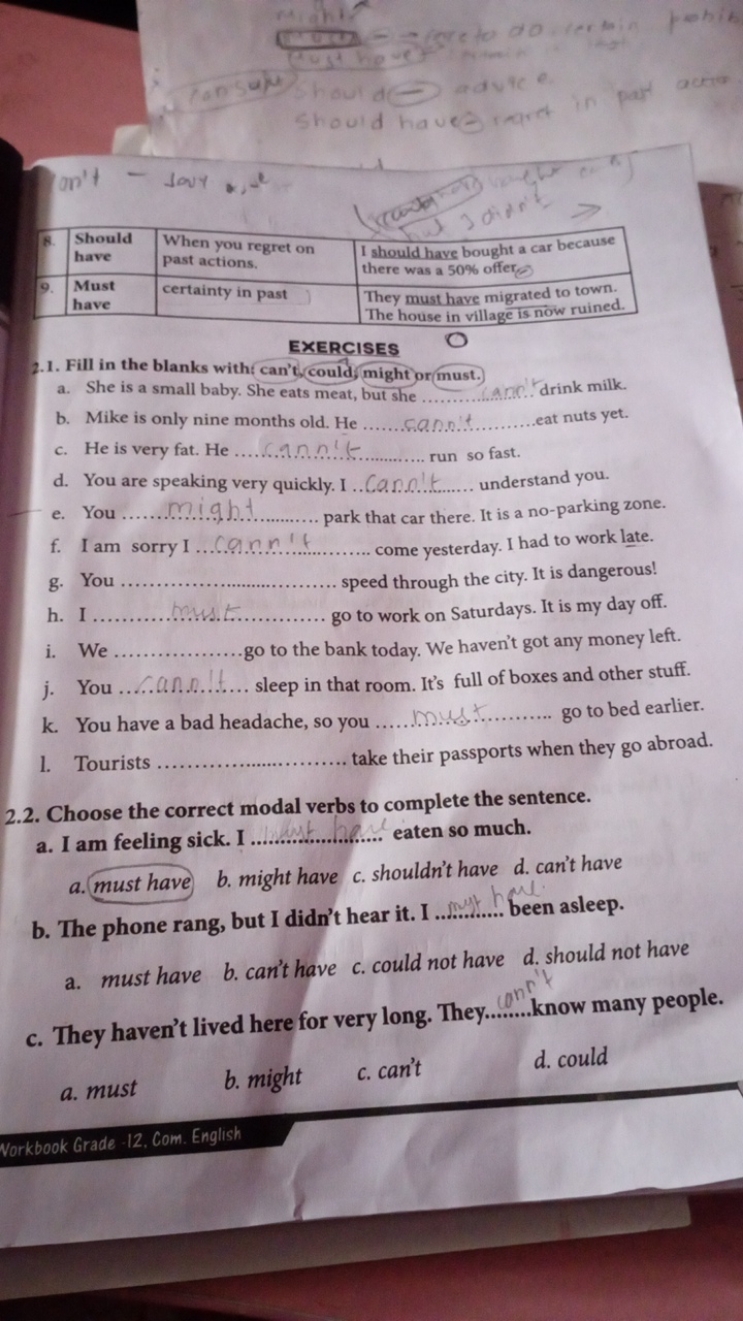 might
must have
should - advice
should have = regret in past
8. Should have When you regret on past actions. I should have bought a car because there was a 50% offer.
9. Must have certainty in past They must have migrated to town. The house in village is now ruined.
EXERCISES
2.1. Fill in the blanks with: can't, could, might or must.
a. She is a small baby. She eats meat, but she ....cann't.. drink milk.
b. Mike is only nine months old. He .....cann't..........eat nuts yet.
c. He is very fat. He ....cann't............ run so fast.
d. You are speaking very quickly. I ..Cann't...... understand you.
e. You ......might.......... park that car there. It is a no-parking zone.
f. I am sorry I ...cann't............ come yesterday. I had to work late.
g. You .................................. speed through the city. It is dangerous!
h. I ...........must............. go to work on Saturdays. It is my day off.
i. We ....................go to the bank today. We haven't got any money left.
j. You ...cann't.... sleep in that room. It's full of boxes and other stuff.
k. You have a bad headache, so you .....must.......... go to bed earlier.
l. Tourists ............................. take their passports when they go abroad.
2.2. Choose the correct modal verbs to complete the sentence.
a. I am feeling sick. I ....must have.... eaten so much.
a. must have b. might have c. shouldn't have d. can't have
b. The phone rang, but I didn't hear it. I ..must have.. been asleep.
a. must have b. can't have c. could not have d. should not have
c. They haven't lived here for very long. They..cann't..know many people.
a. must b. might c. can't d. could
Workbook Grade -12, Com. English